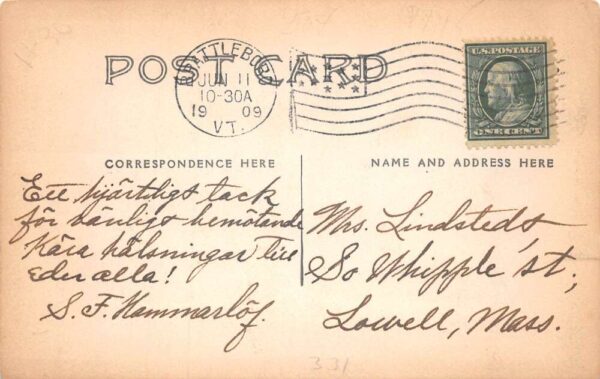 POST CARD
BRATTLEBORO
JUN 11
10-30A
19 09
VT.
U.S. POSTAGE
ONE CENT
CORRESPONDENCE HERE
NAME AND ADDRESS HERE
Ett hjärtligt tack
för vänligt bemötande
Kära hälsningar till
eder alla!
S. F. Hammarlöf.
Mrs. Lindsteds
So Whipple st,
Lowell, Mass.
331